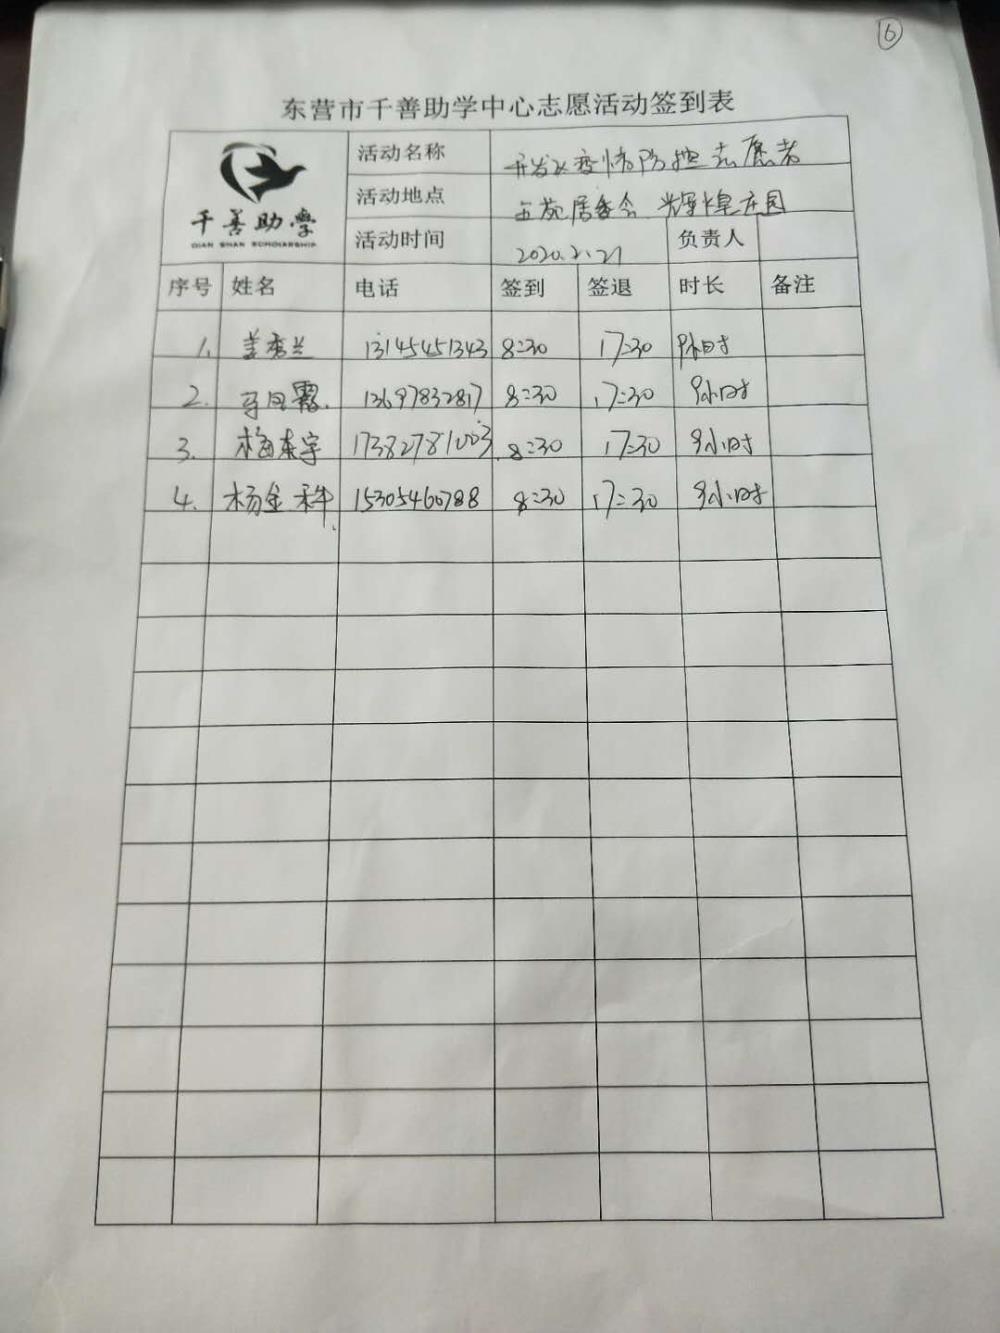 6
东营市千善助学中心志愿活动签到表
千善助学
QIAN SHAN SCHOLARSHIP
活动名称 开发区疫情防控志愿者
活动地点 五苑居委会 辉煌庄园
活动时间 2020.2.21 负责人
序号 姓名 电话 签到 签退 时长 备注
1. 姜秀兰 13145451343 8:30 17:30 9小时
2. 13697832817 8:30 17:30 9小时
3. 梅东宇 17382781003 8:30 17:30 9小时
4. 杨金科 15305460788 8:30 17:30 9小时